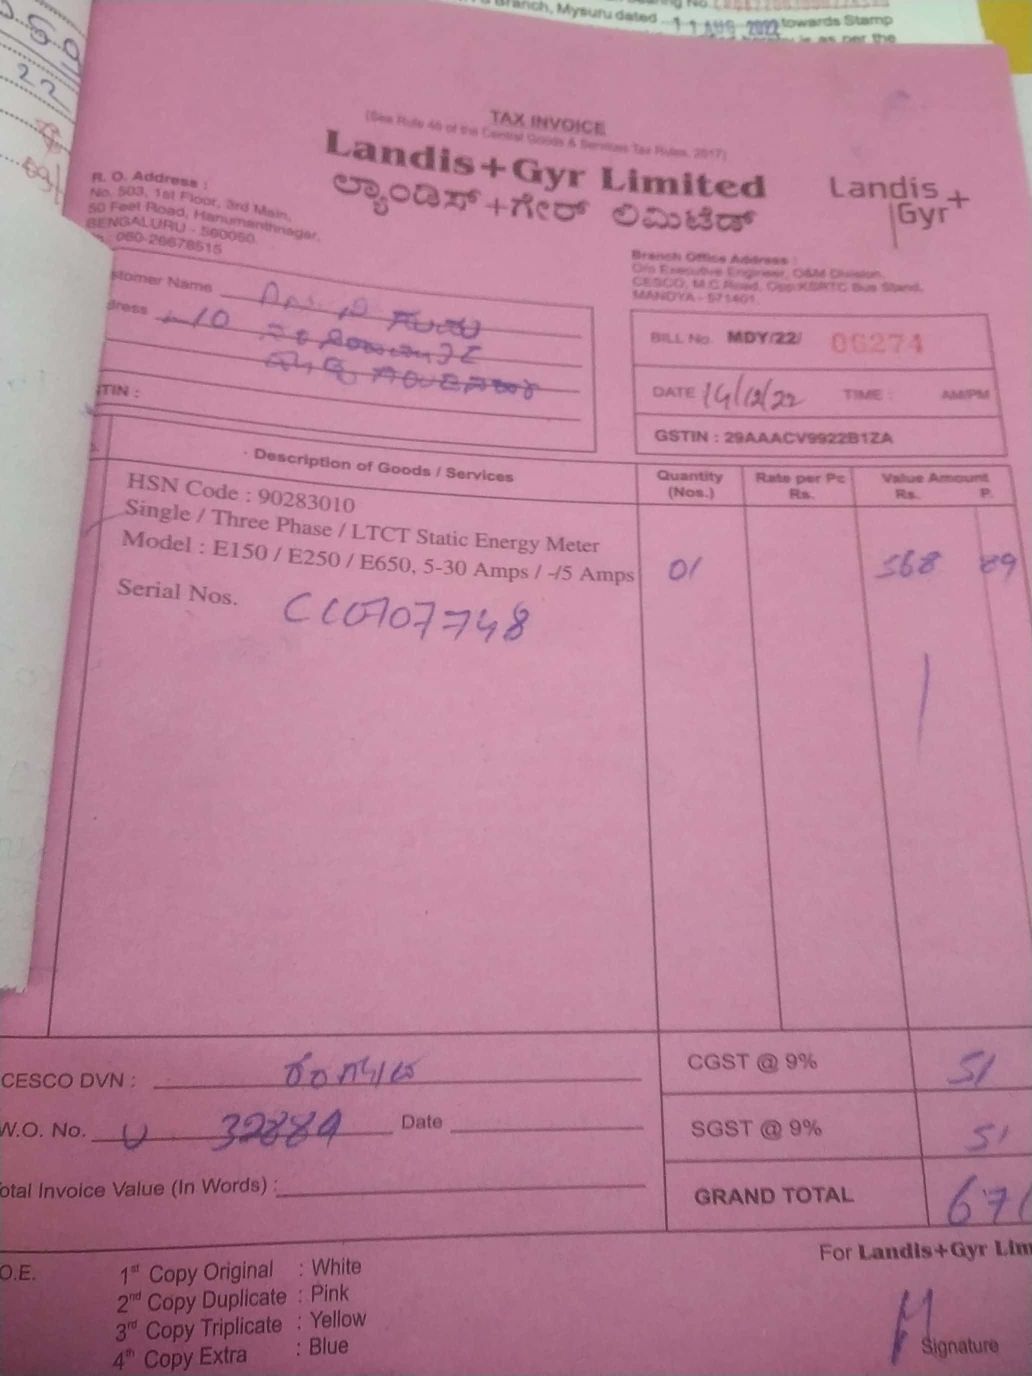 Branch, Mysuru dated 11 AUG 2022 towards Stamp
as per the
59
22
TAX INVOICE
(See Rule 46 of the Central Goods & Services Tax Rules, 2017)
Landis+Gyr Limited
ಲ್ಯಾಂಡಿಸ್+ಗೇರ್ ಲಿಮಿಟೆಡ್
Landis+
Gyr
R. O. Address :
No. 503, 1st Floor, 3rd Main,
50 Feet Road, Hanumanthnagar,
BENGALURU - 560050.
080-26678515
Branch Office Address :
O/o Executive Engineer, O&M Division,
CESCO, M.C Road, Opp:KSRTC Bus Stand,
MANDYA - 571401.
stomer Name
dress
10
TIN :
BILL No. MDY/22/ 06274
DATE 14/12/22 TIME : AM/PM
GSTIN : 29AAACV9922B1ZA
Description of Goods / Services
Quantity (Nos.)
Rate per Pc Rs.
Value Amount Rs. P.
HSN Code : 90283010
Single / Three Phase / LTCT Static Energy Meter
Model : E150 / E250 / E650, 5-30 Amps / -/5 Amps 01 568 89
Serial Nos.
CESCO DVN :
W.O. No. 32889 Date
otal Invoice Value (In Words) :
CGST @ 9% 51
SGST @ 9% 51
GRAND TOTAL 671
For Landis+Gyr Lim
O.E.
1st Copy Original : White
2nd Copy Duplicate : Pink
3rd Copy Triplicate : Yellow
4th Copy Extra : Blue
Signature